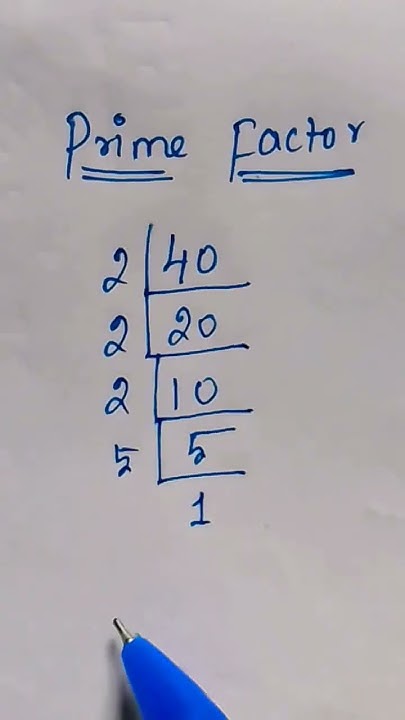 Prime Factor
2 40
2 20
2 10
5 5
1